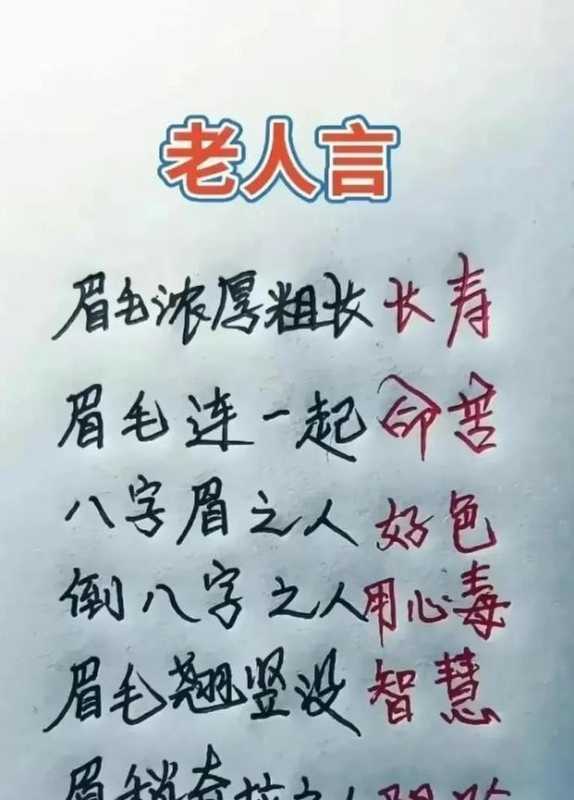 老人言
眉毛浓厚粗长长寿
眉毛连一起命苦
八字眉之人好色
倒八字之人用心毒
眉毛翘竖没智慧
眉